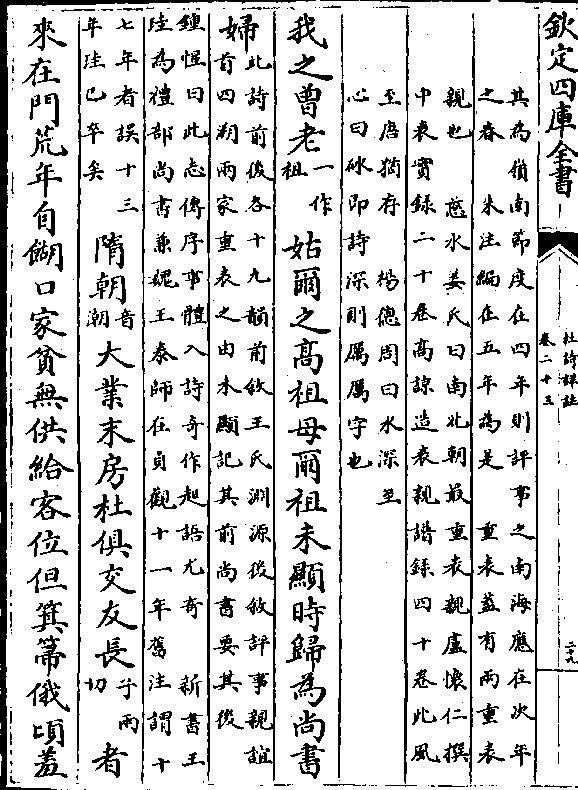 欽定四庫全書
杜詩詳註
卷二十三
二十九
其為嶺南節度在四年則評事之南海應在次年
之春 朱注編在五年為是 重表蓋有兩重表
親也 慈水姜氏曰南北朝最重表親盧懷仁撰
中表實録二十卷高諒造表親譜録四十卷此風
至唐猶存 楊德周曰水深至
心曰砅即詩深則厲厲字也
我之曾老一作祖姑爾之髙祖母爾祖未顯時歸為尚書
婦
此詩前後各十九韻前敘王氏淵源後敘評事親誼
首四朔兩家重表之由本顯記其前尚書要其後
鍾惺曰此志傳序事體入詩奇作起語尤奇 新書王
珪為禮部尚書兼魏王泰師在貞觀十一年舊注謂十
七年者誤十三
年珪已卒矣
隋朝音潮大業末房杜俱交友長子兩切者
來在門荒年自餬口家貧無供給客位但箕箒俄頃羞